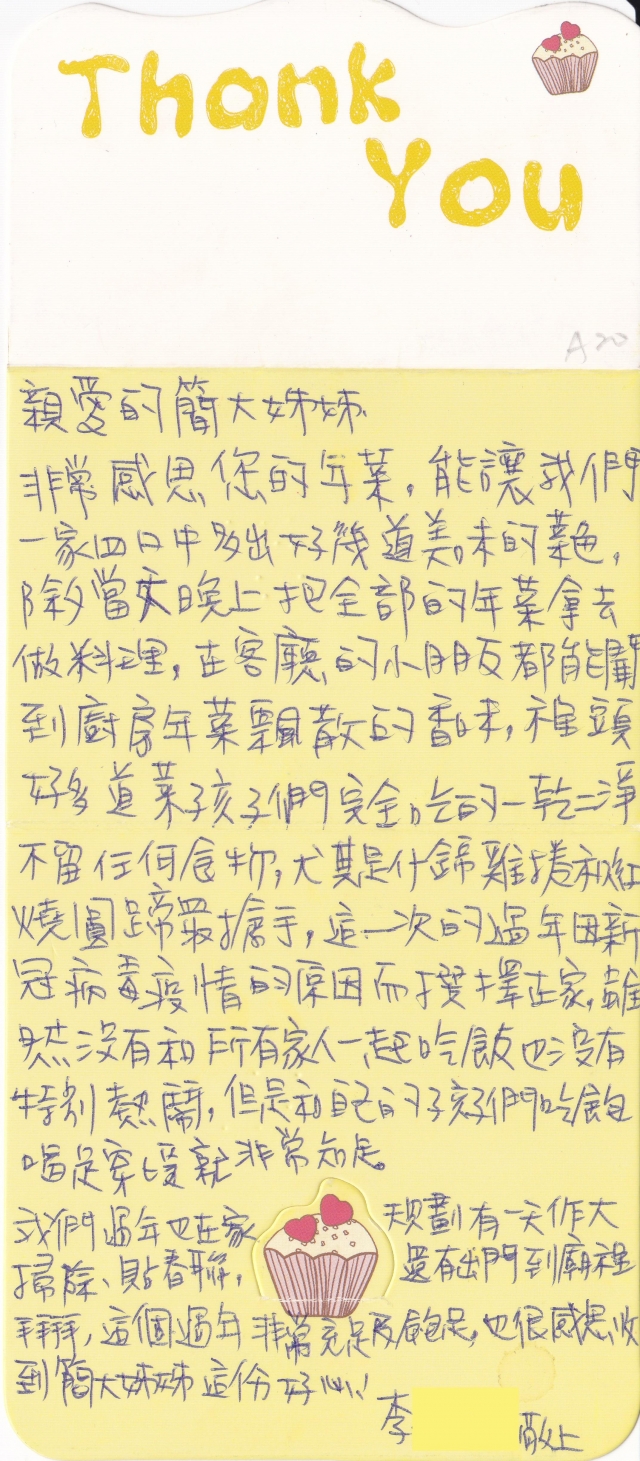 Thank
You
A20
親愛的簡大姊姊:
非常感恩您的年菜,能讓我們
一家四口中多出好幾道美味的菜色,
除夕當天晚上把全部的年菜拿去
做料理,在客廳的小朋友都能聞
到廚房年菜飄散的香味,裡頭
好多道菜孩子們完全吃的一乾二淨
不留任何食物,尤其是什錦雞捲和紅
燒圓蹄最搶手,這一次的過年因新
冠病毒疫情的原因而選擇在家,雖
然沒有和所有家人一起吃飯也沒有
特別熱鬧,但是和自己的孩子們吃飽
喝足穿暖就非常知足。
我們過年也在家 規劃有一天作大
掃除、貼春聯, 還有出門到廟裡
拜拜,這個過年非常充足及飽足,也很感恩收
到簡大姊姊這份好心!
李 敬上